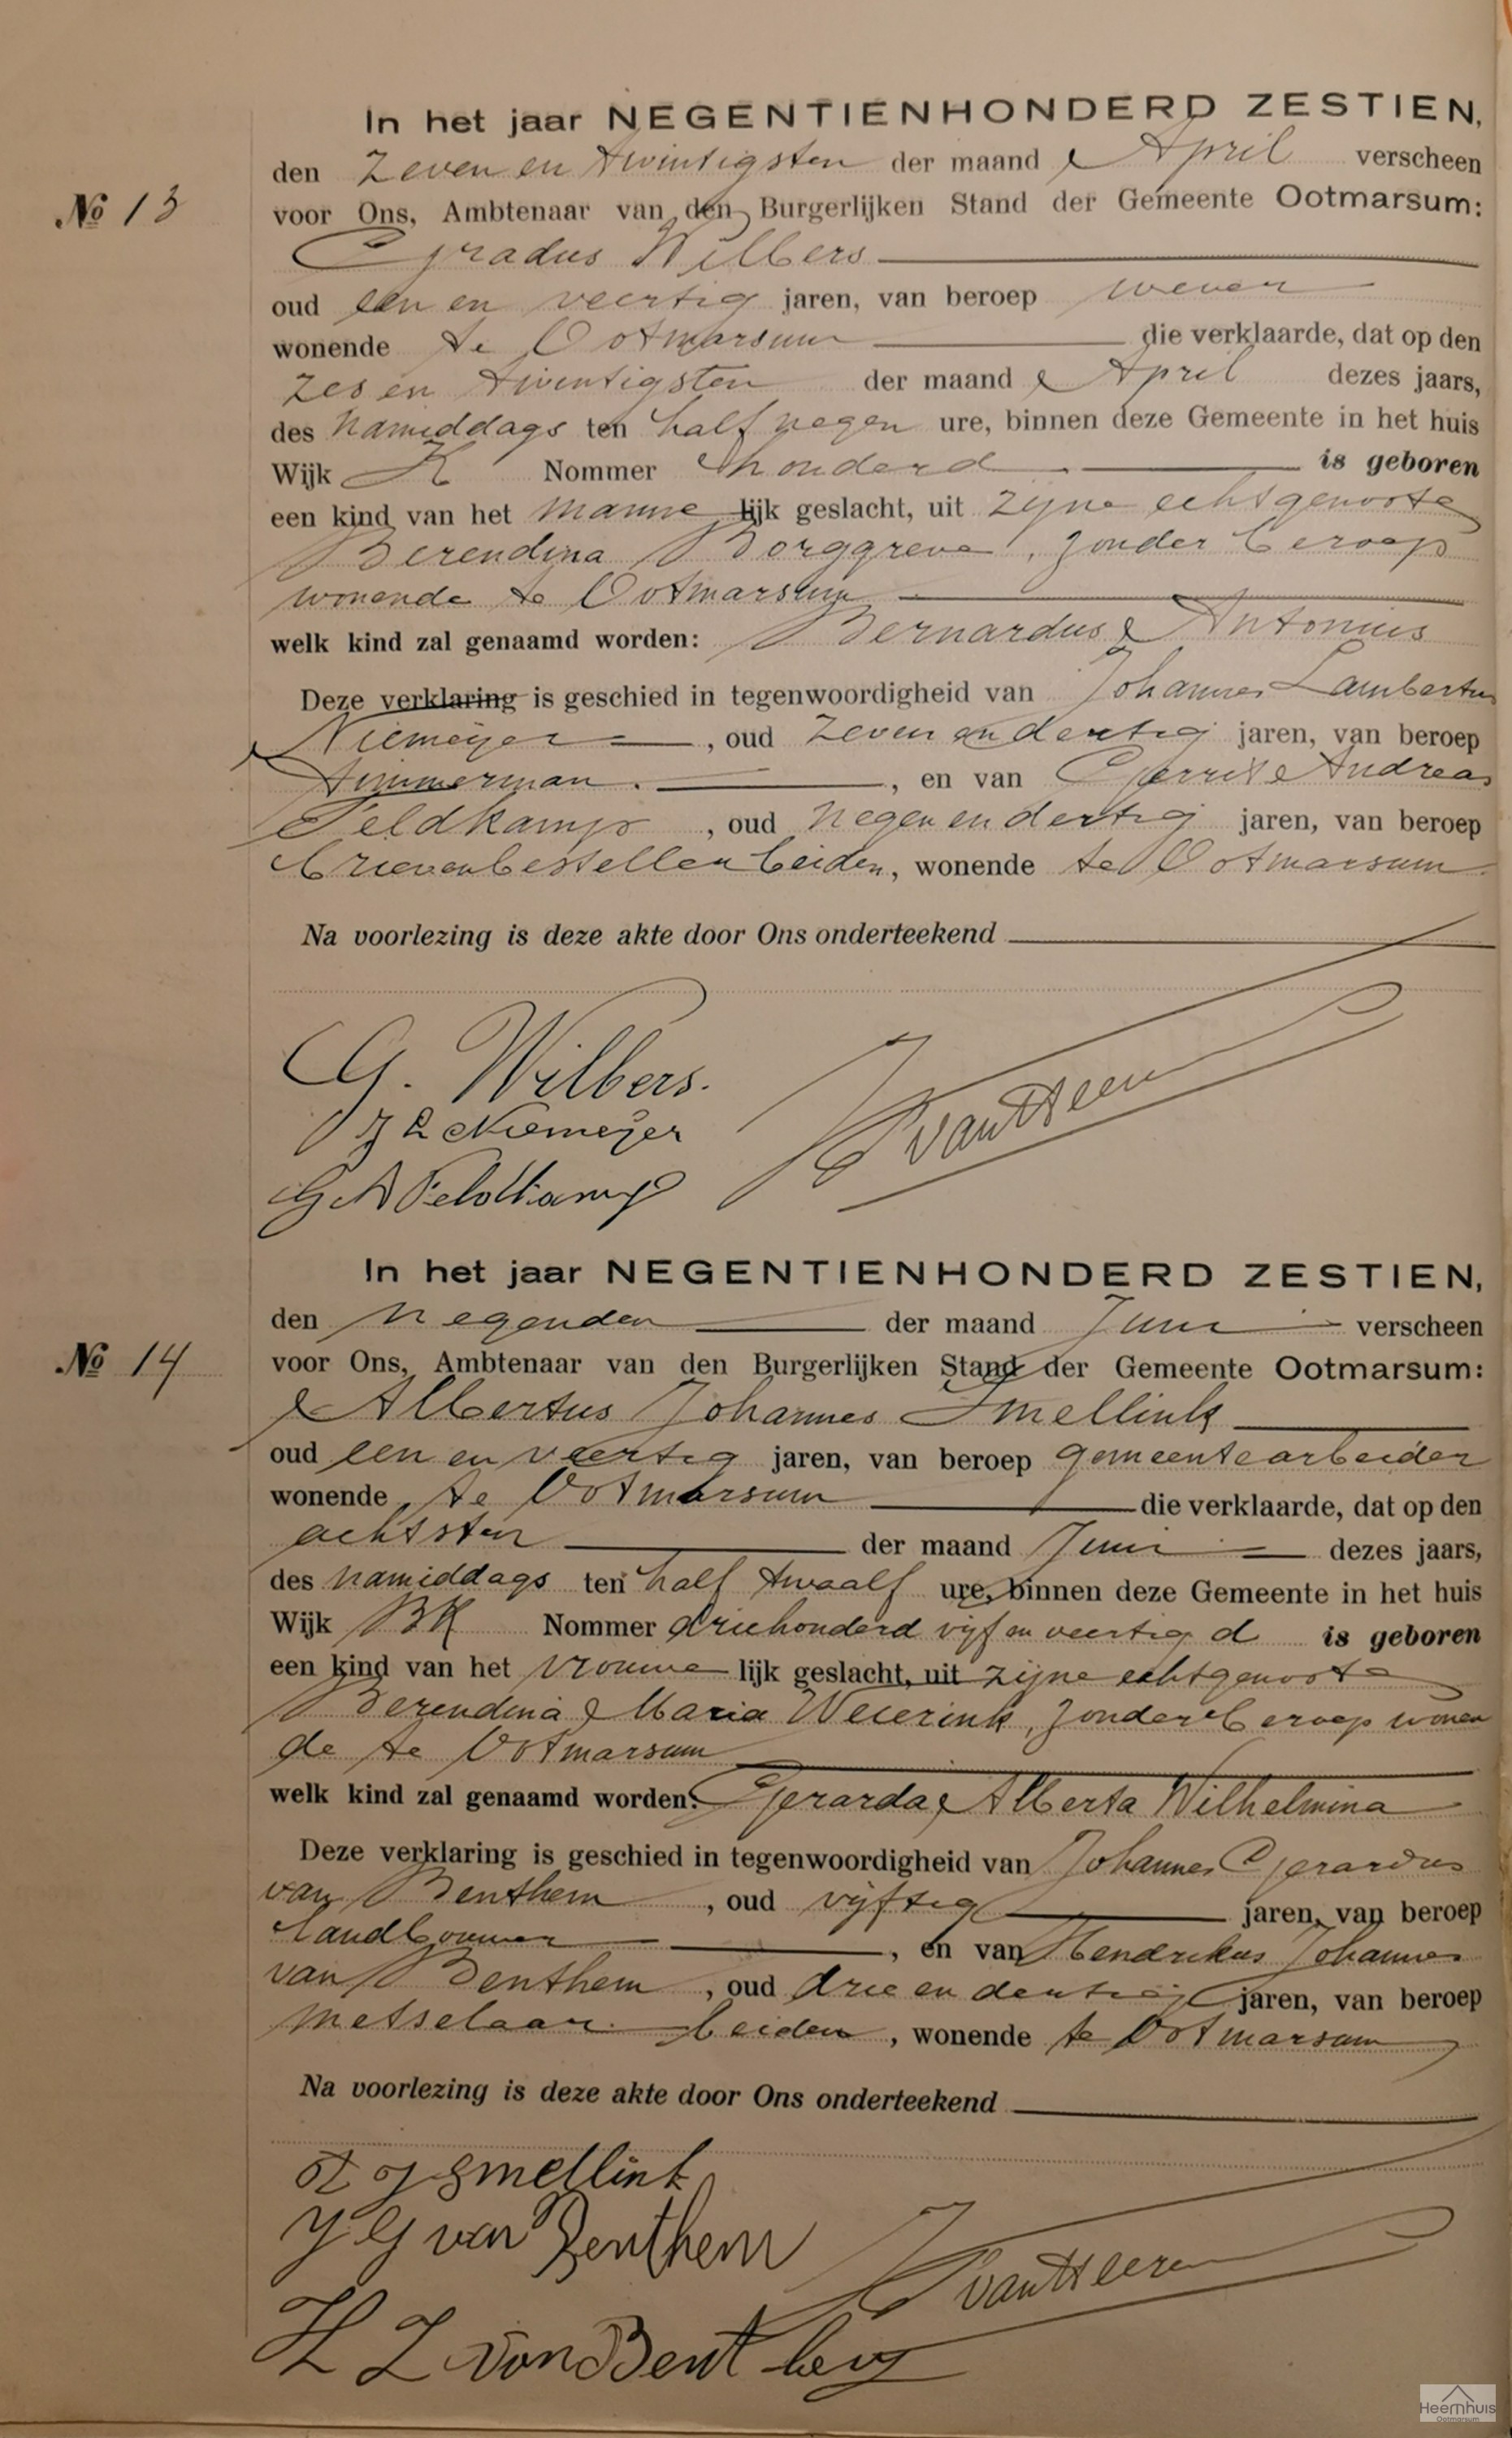 In het jaar NEGENTIENHONDERD ZESTIEN,
den Zeven en twintigsten der maand April verscheen
No 13
voor Ons, Ambtenaar van den Burgerlijken Stand der Gemeente Ootmarsum:
Gradus Wilbers
oud een en veertig jaren, van beroep wever
wonende te Ootmarsum die verklaarde, dat op den
zes en twintigsten der maand April dezes jaars,
des namiddags ten half negen ure, binnen deze Gemeente in het huis
Wijk K Nommer honderd is geboren
een kind van het manne lijk geslacht, uit zijne echtgenoote
Berendina Borggreve, zonder beroep
wonende te Ootmarsum
welk kind zal genaamd worden: Bernardus Antonius
Deze verklaring is geschied in tegenwoordigheid van Johannes Lambertus
Niemeijer, oud zeven en dertig jaren, van beroep
timmerman, en van Gerrit Andreas
Veldkamp, oud negen en dertig jaren, van beroep
brievenbesteller beiden, wonende te Ootmarsum
Na voorlezing is deze akte door Ons onderteekend
G. Wilbers.
J L Niemeijer
G A Veldkamp
van Heeren
In het jaar NEGENTIENHONDERD ZESTIEN,
den negenden der maand Juni verscheen
No 14
voor Ons, Ambtenaar van den Burgerlijken Stand der Gemeente Ootmarsum:
Albertus Johannes Smellink
oud een en veertig jaren, van beroep gemeentearbeider
wonende te Ootmarsum die verklaarde, dat op den
achtsten der maand Juni dezes jaars,
des namiddags ten half twaalf ure, binnen deze Gemeente in het huis
Wijk BK Nommer driehonderd vijf en veertig d is geboren
een kind van het vrouwe lijk geslacht, uit zijne echtgenoote
Berendina Maria Weierink, zonder beroep wonen
de te Ootmarsum
welk kind zal genaamd worden: Gerarda Alberta Wilhelmina
Deze verklaring is geschied in tegenwoordigheid van Johannes Gerardus
van Benthem, oud vijftig jaren, van beroep
landbouwer, en van Hendrikus Johannes
van Benthem, oud drie en dertig jaren, van beroep
metselaar beiden, wonende te Ootmarsum
Na voorlezing is deze akte door Ons onderteekend
A J Smellink
J G van Benthem
van Heeren
H J van Benthem
Heemhuis
Ootmarsum